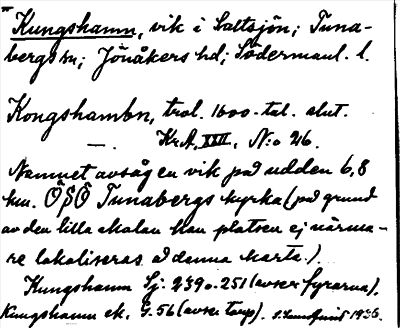 Kungshamn, vik i Saltsjön; Tuna-
bergs sn; Jönåkers hd; Södermanl. l.
Kongshambn, trol. 1600-tal. slut.
—. Kr.A, XXII, N:o 26.
Namnet avsåg en vik på udden 6,8
km. ÖSÖ Tunabergs kyrka (på grund
av den lilla skalan kan platsen ej närma-
re lokaliseras å denna karta.)
Kungshamn Sj. 239 o. 251 (avser fyrarna),
Kungshamn ek. G. 56 (avser torp). 1936.